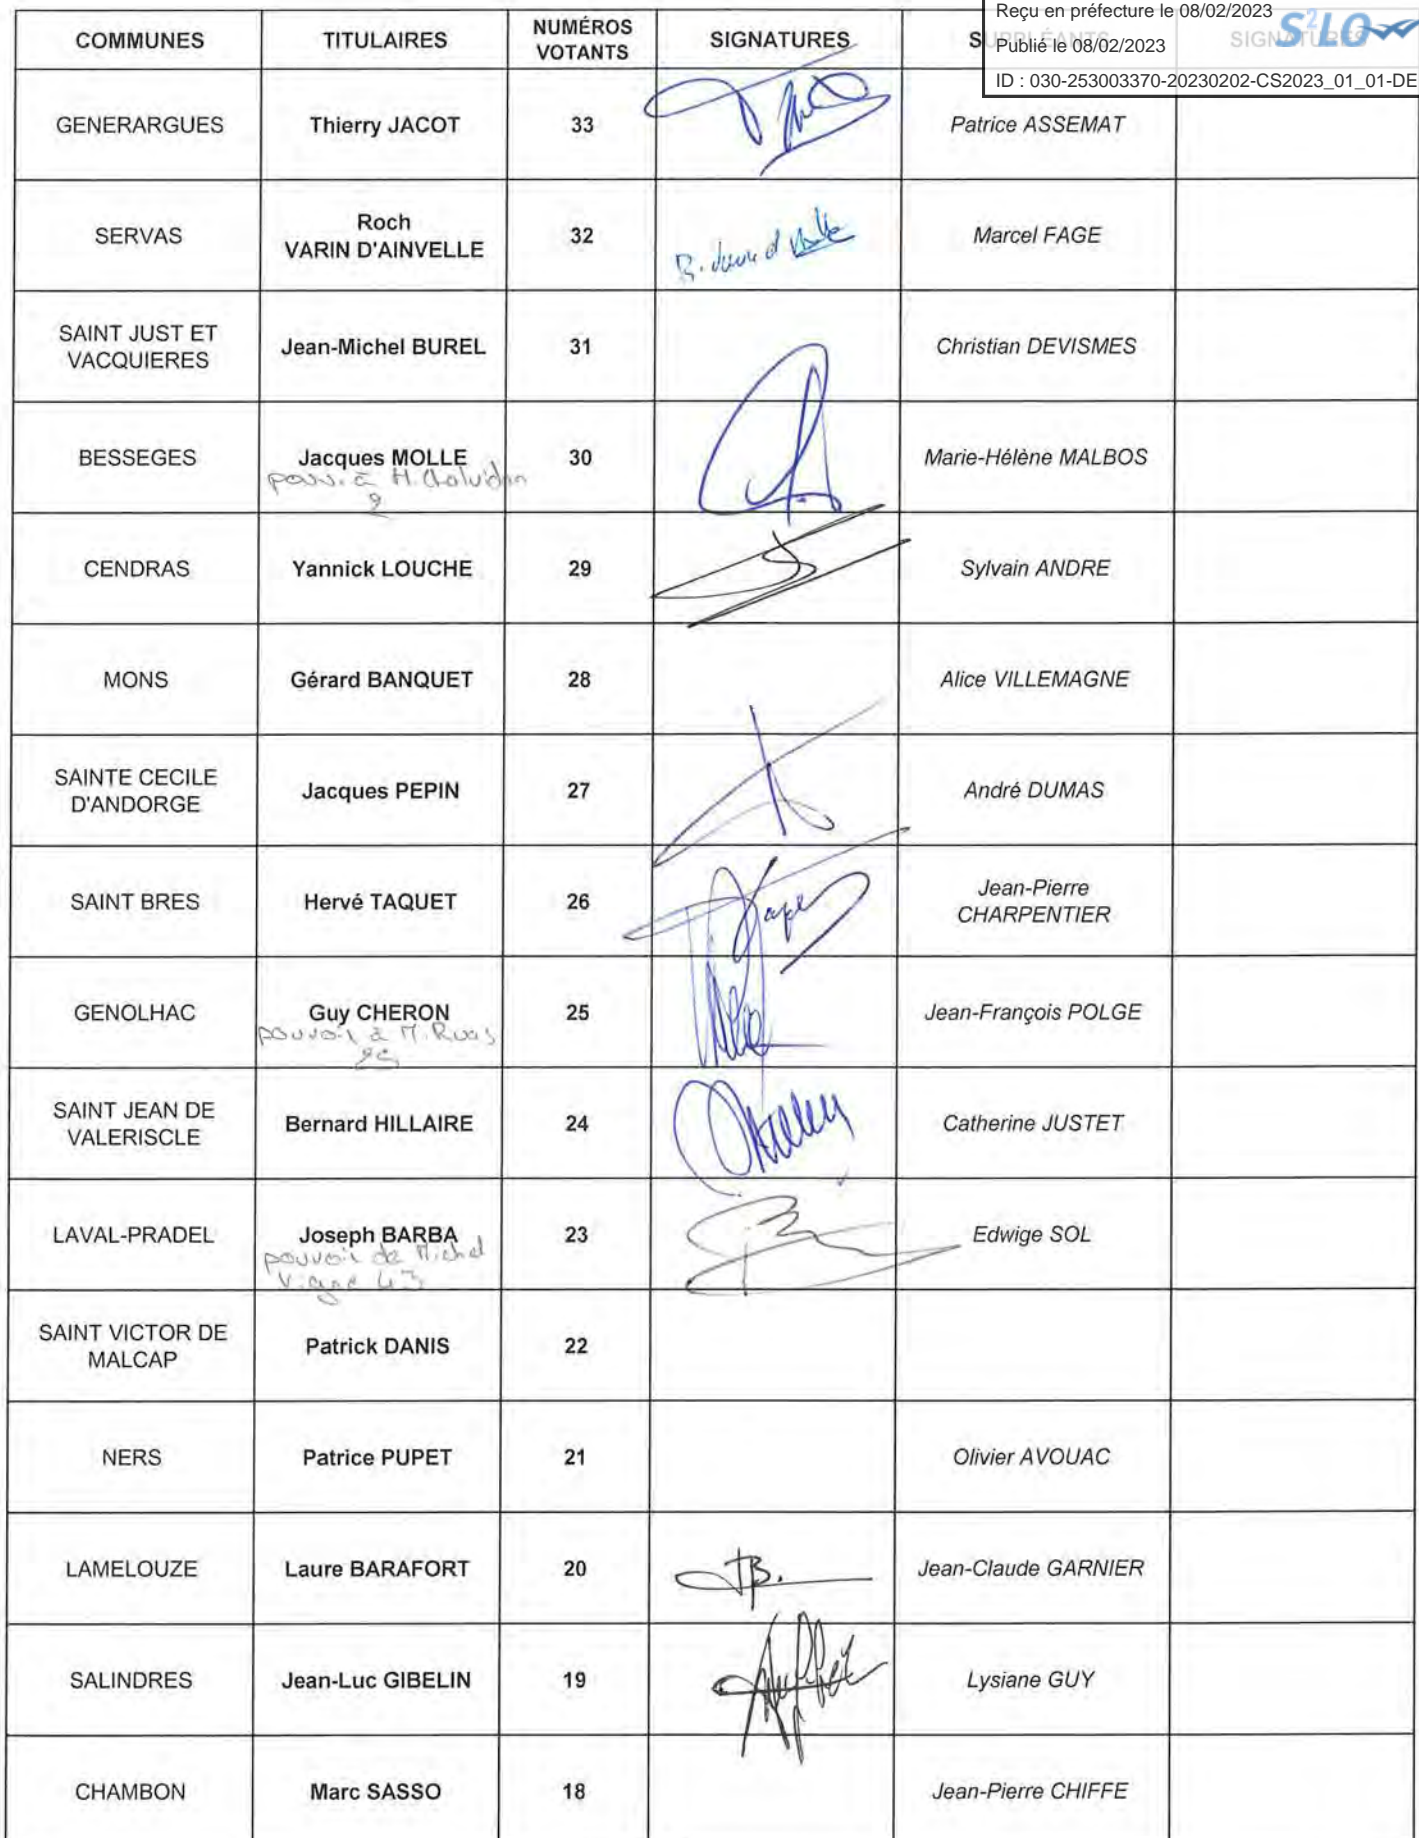 Reçu en préfecture le 08/02/2023
Publié le 08/02/2023
S²LO
ID : 030-253003370-20230202-CS2023_01_01-DE
COMMUNES TITULAIRES NUMÉROS VOTANTS SIGNATURES SUPPLÉANTS SIGNATURES
GENERARGUES Thierry JACOT 33 Patrice ASSEMAT
SERVAS Roch VARIN D'AINVELLE 32 Marcel FAGE
SAINT JUST ET VACQUIERES Jean-Michel BUREL 31 Christian DEVISMES
BESSEGES Jacques MOLLE 30 Marie-Hélène MALBOS
pouv. à M. Chalvidan
CENDRAS Yannick LOUCHE 29 Sylvain ANDRE
MONS Gérard BANQUET 28 Alice VILLEMAGNE
SAINTE CECILE D'ANDORGE Jacques PEPIN 27 André DUMAS
SAINT BRES Hervé TAQUET 26 Jean-Pierre CHARPENTIER
GENOLHAC Guy CHERON 25 Jean-François POLGE
pouvoir à M. Ruas
SAINT JEAN DE VALERISCLE Bernard HILLAIRE 24 Catherine JUSTET
LAVAL-PRADEL Joseph BARBA 23 Edwige SOL
pouvoir de Michel
Vigne 43
SAINT VICTOR DE MALCAP Patrick DANIS 22
NERS Patrice PUPET 21 Olivier AVOUAC
LAMELOUZE Laure BARAFORT 20 Jean-Claude GARNIER
SALINDRES Jean-Luc GIBELIN 19 Lysiane GUY
CHAMBON Marc SASSO 18 Jean-Pierre CHIFFE